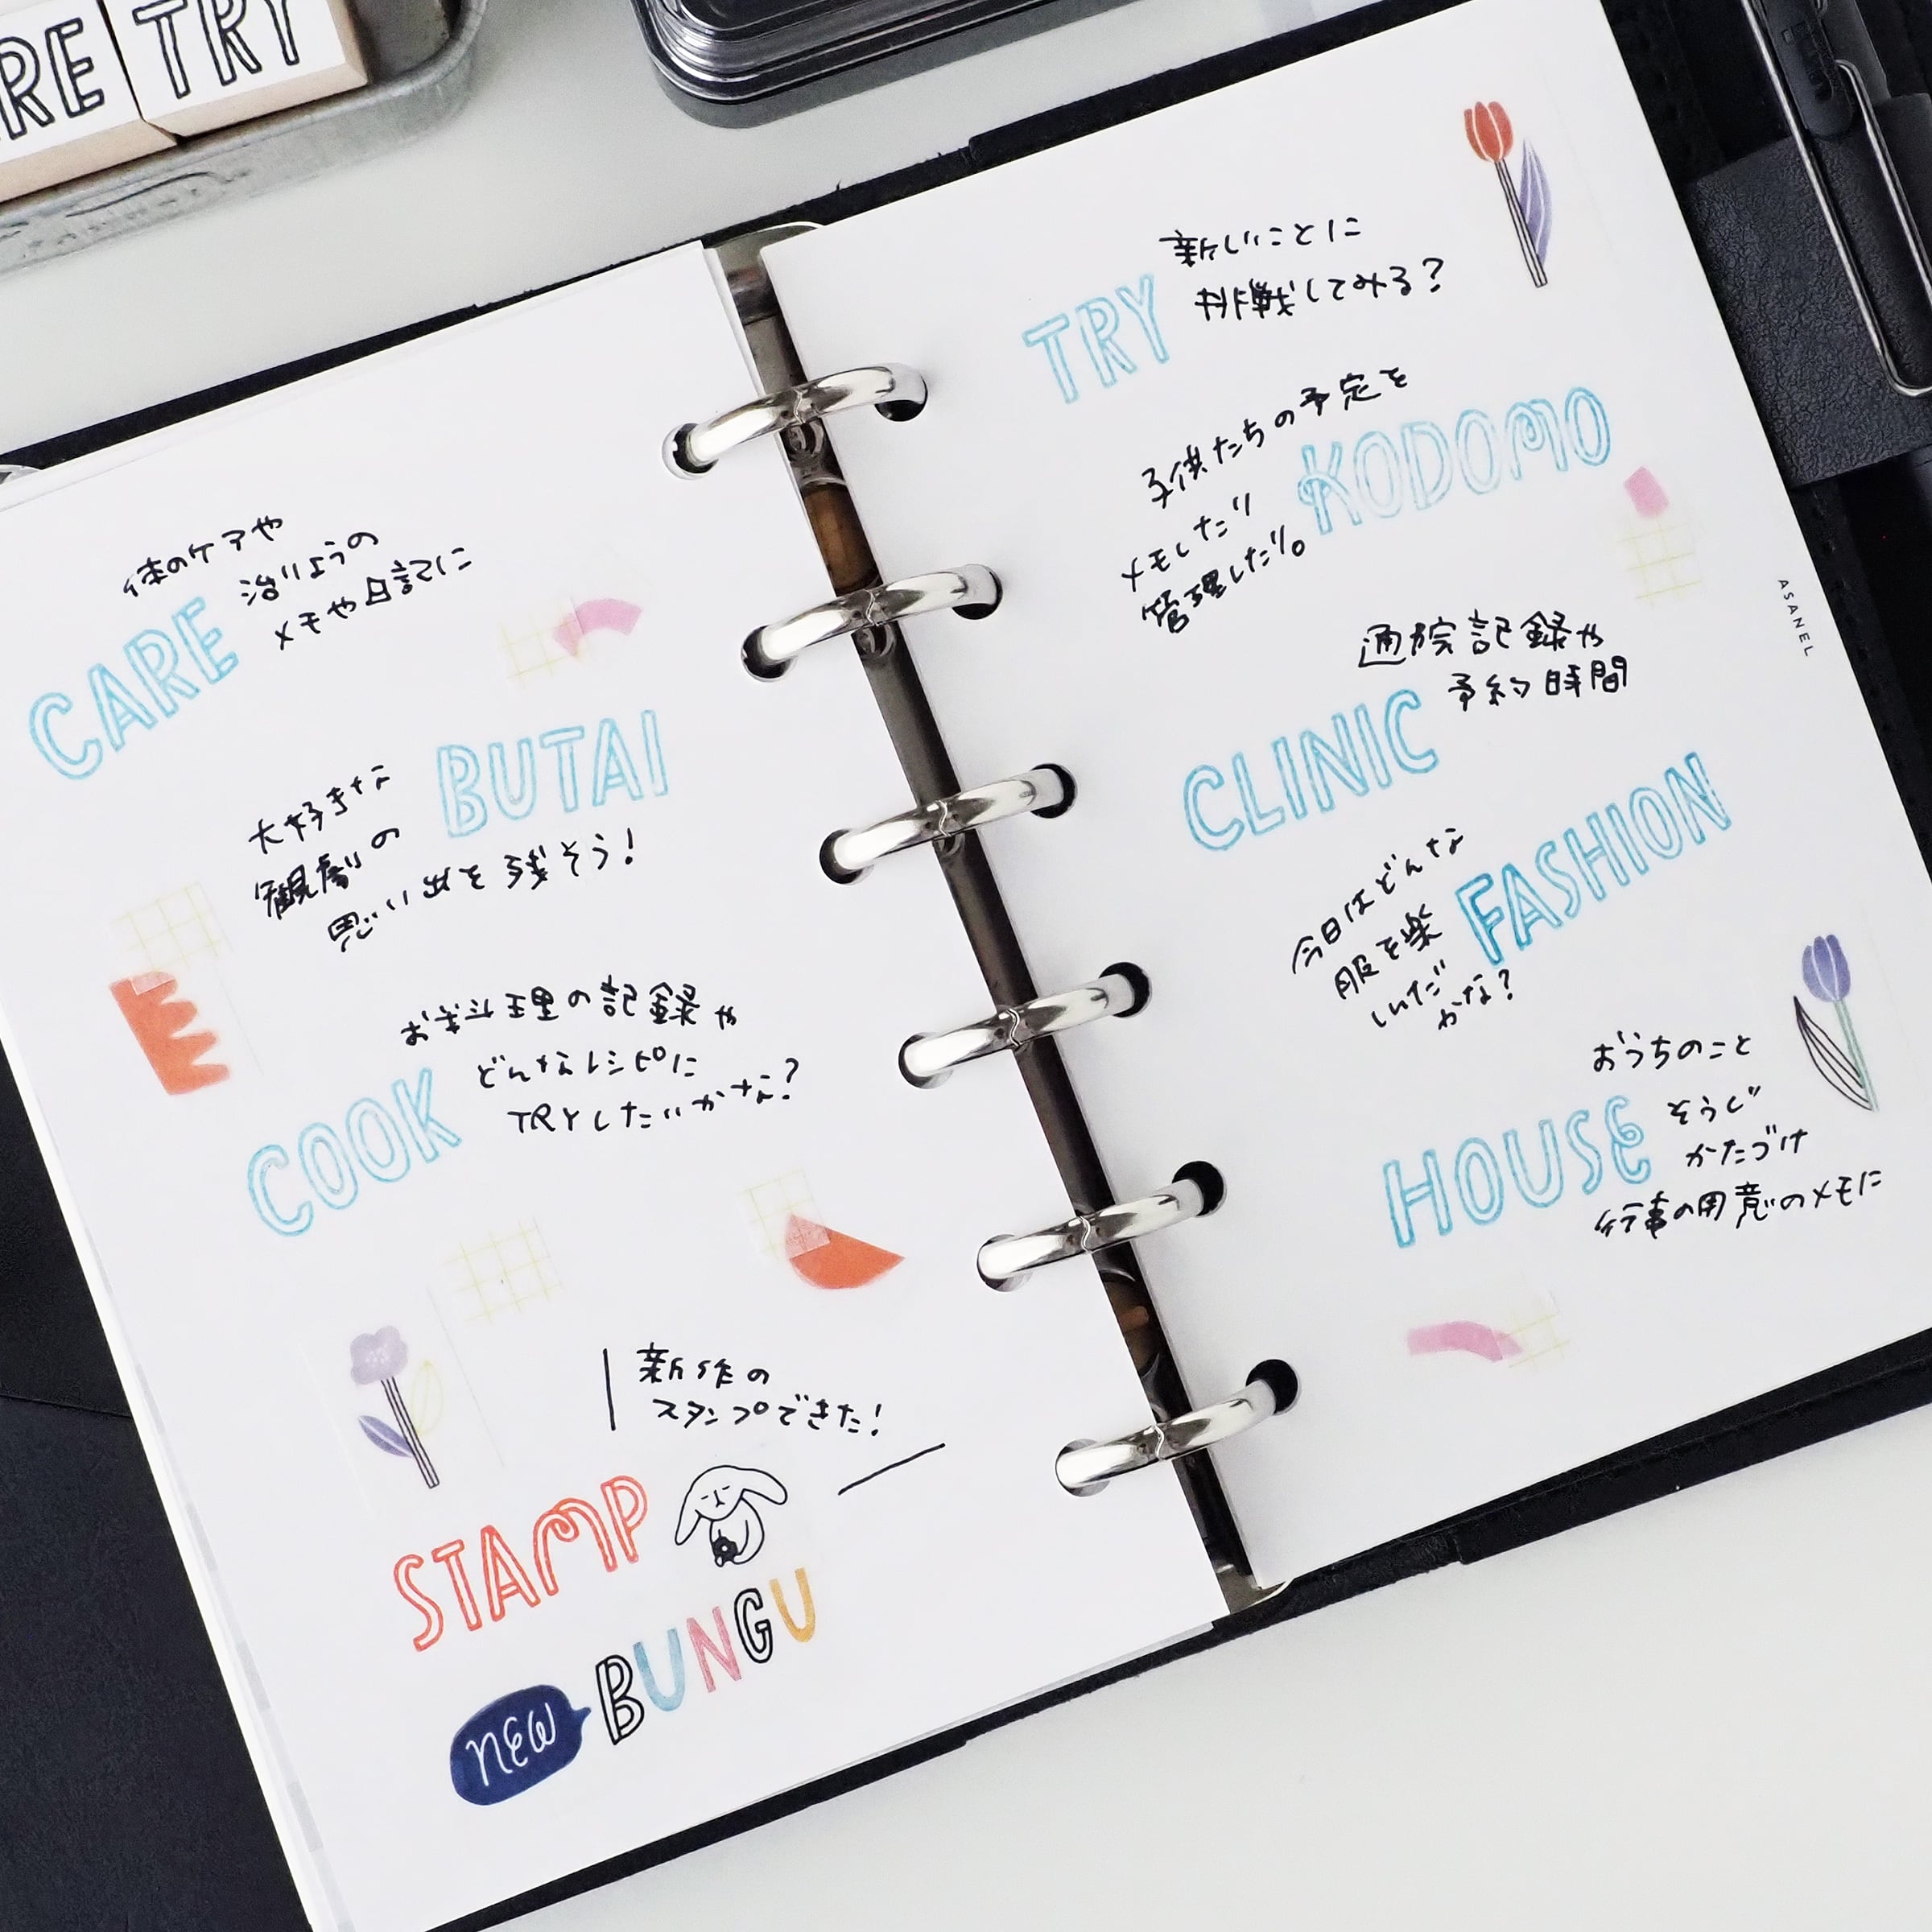 RE
TRY
体のケアや
治りょうの
メモや日記に
CARE
BUTAI
大好きな
観劇の
思い出を残そう！
お料理の記録や
どんなレシピに
TRYしたいかな？
COOK
新作の
スタンプできた！
STAMP
NEW
BUNGU
新しいことに
挑戦してみる？
TRY
子供たちの予定を
メモしたり
管理したり。
KODOMO
通院記録や
予約時間
CLINIC
今日はどんな
服を楽
しんだ
かな？
FASHION
おうちのこと
そうじ
かたづけ
行事の用意のメモに
HOUSE
ASANEL